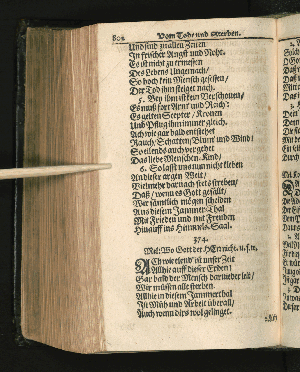 804 Vom Tode und Sterben.
Und sind zu allen Zeiten
In frischer Angst und Noht.
Es ist nicht zu ermessen
Des Lebens Ungemach/
So hoch kein Mensch gesessen/
Der Tod ihm steiget nach.
5. Bey ihm ist kein Verschonen/
Es muß fort Arm und Reich:
Es gelten Scepter/ Kronen
Und Pflug ihm immer gleich.
Ach wie gar bald entstehet
Rauch/ Schatten/ Blum und Wind!
So eilends auch vergehet
Das liebe Menschen-Kind/
6. So last uns nun nicht kleben
An dieser argen Welt/
Vielmehr darnach stets streben/
Daß/ wenn es Gott gefällt/
Wir sämtlich mögen scheiden
Aus diesem Jammer-Thal
Mit Frieden und mit Freuden
Hinauff ins Himmels-Saal.
374.
Mel: Wo Gott der HErr nicht. u.s.w.
Ach wie elend ist unser Zeit
Allhie auff dieser Erden!
Gar bald der Mensch darnieder leit/
Wir müssen alle sterben.
Allhie in diesem Jammerthal
Ist Müh und Arbeit überall/
Auch wenn dirs wol gelinget.